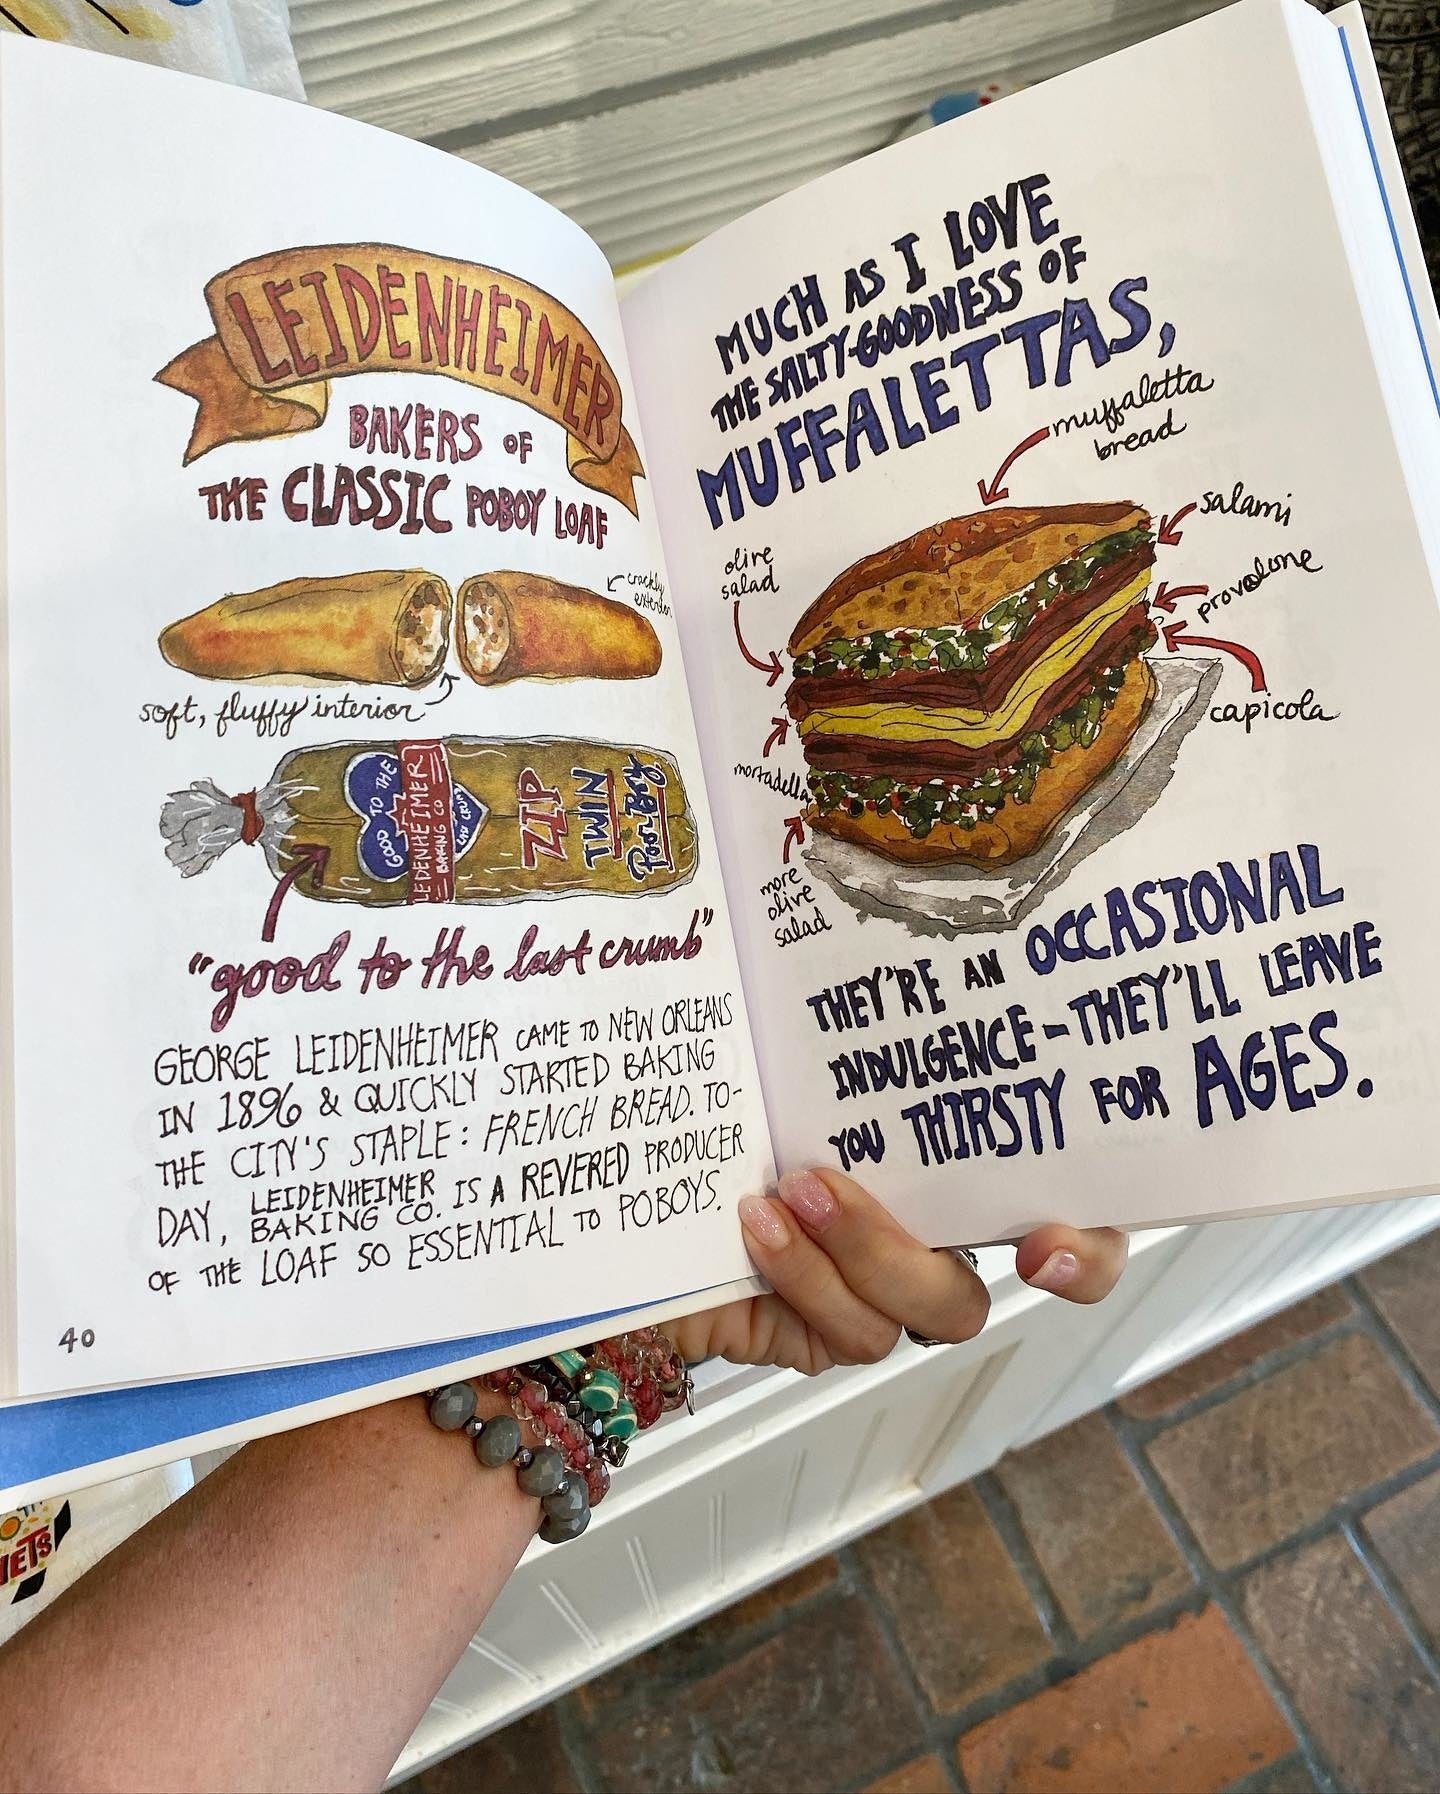 LEIDENHEIMER
BAKERS OF
THE CLASSIC POBOY LOAF
crackly
exterior
soft, fluffy interior
GOOD TO THE
LEIDENHEIMER
BAKING CO
LAST CRUMB
ZIP
TWIN
Poor-Boy
"good to the last crumb"
GEORGE LEIDENHEIMER CAME TO NEW ORLEANS
IN 1896 & QUICKLY STARTED BAKING
THE CITY'S STAPLE: FRENCH BREAD. TO-
DAY, LEIDENHEIMER
BAKING CO. IS A REVERED PRODUCER
OF THE LOAF SO ESSENTIAL TO POBOYS.
40
MUCH AS I LOVE
THE SALTY-GOODNESS OF
MUFFALETTAS,
muffaletta
bread
olive
salad
salami
provolone
capicola
mortadella
more
olive
salad
THEY'RE AN OCCASIONAL
INDULGENCE-THEY'LL LEAVE
YOU THIRSTY FOR AGES.